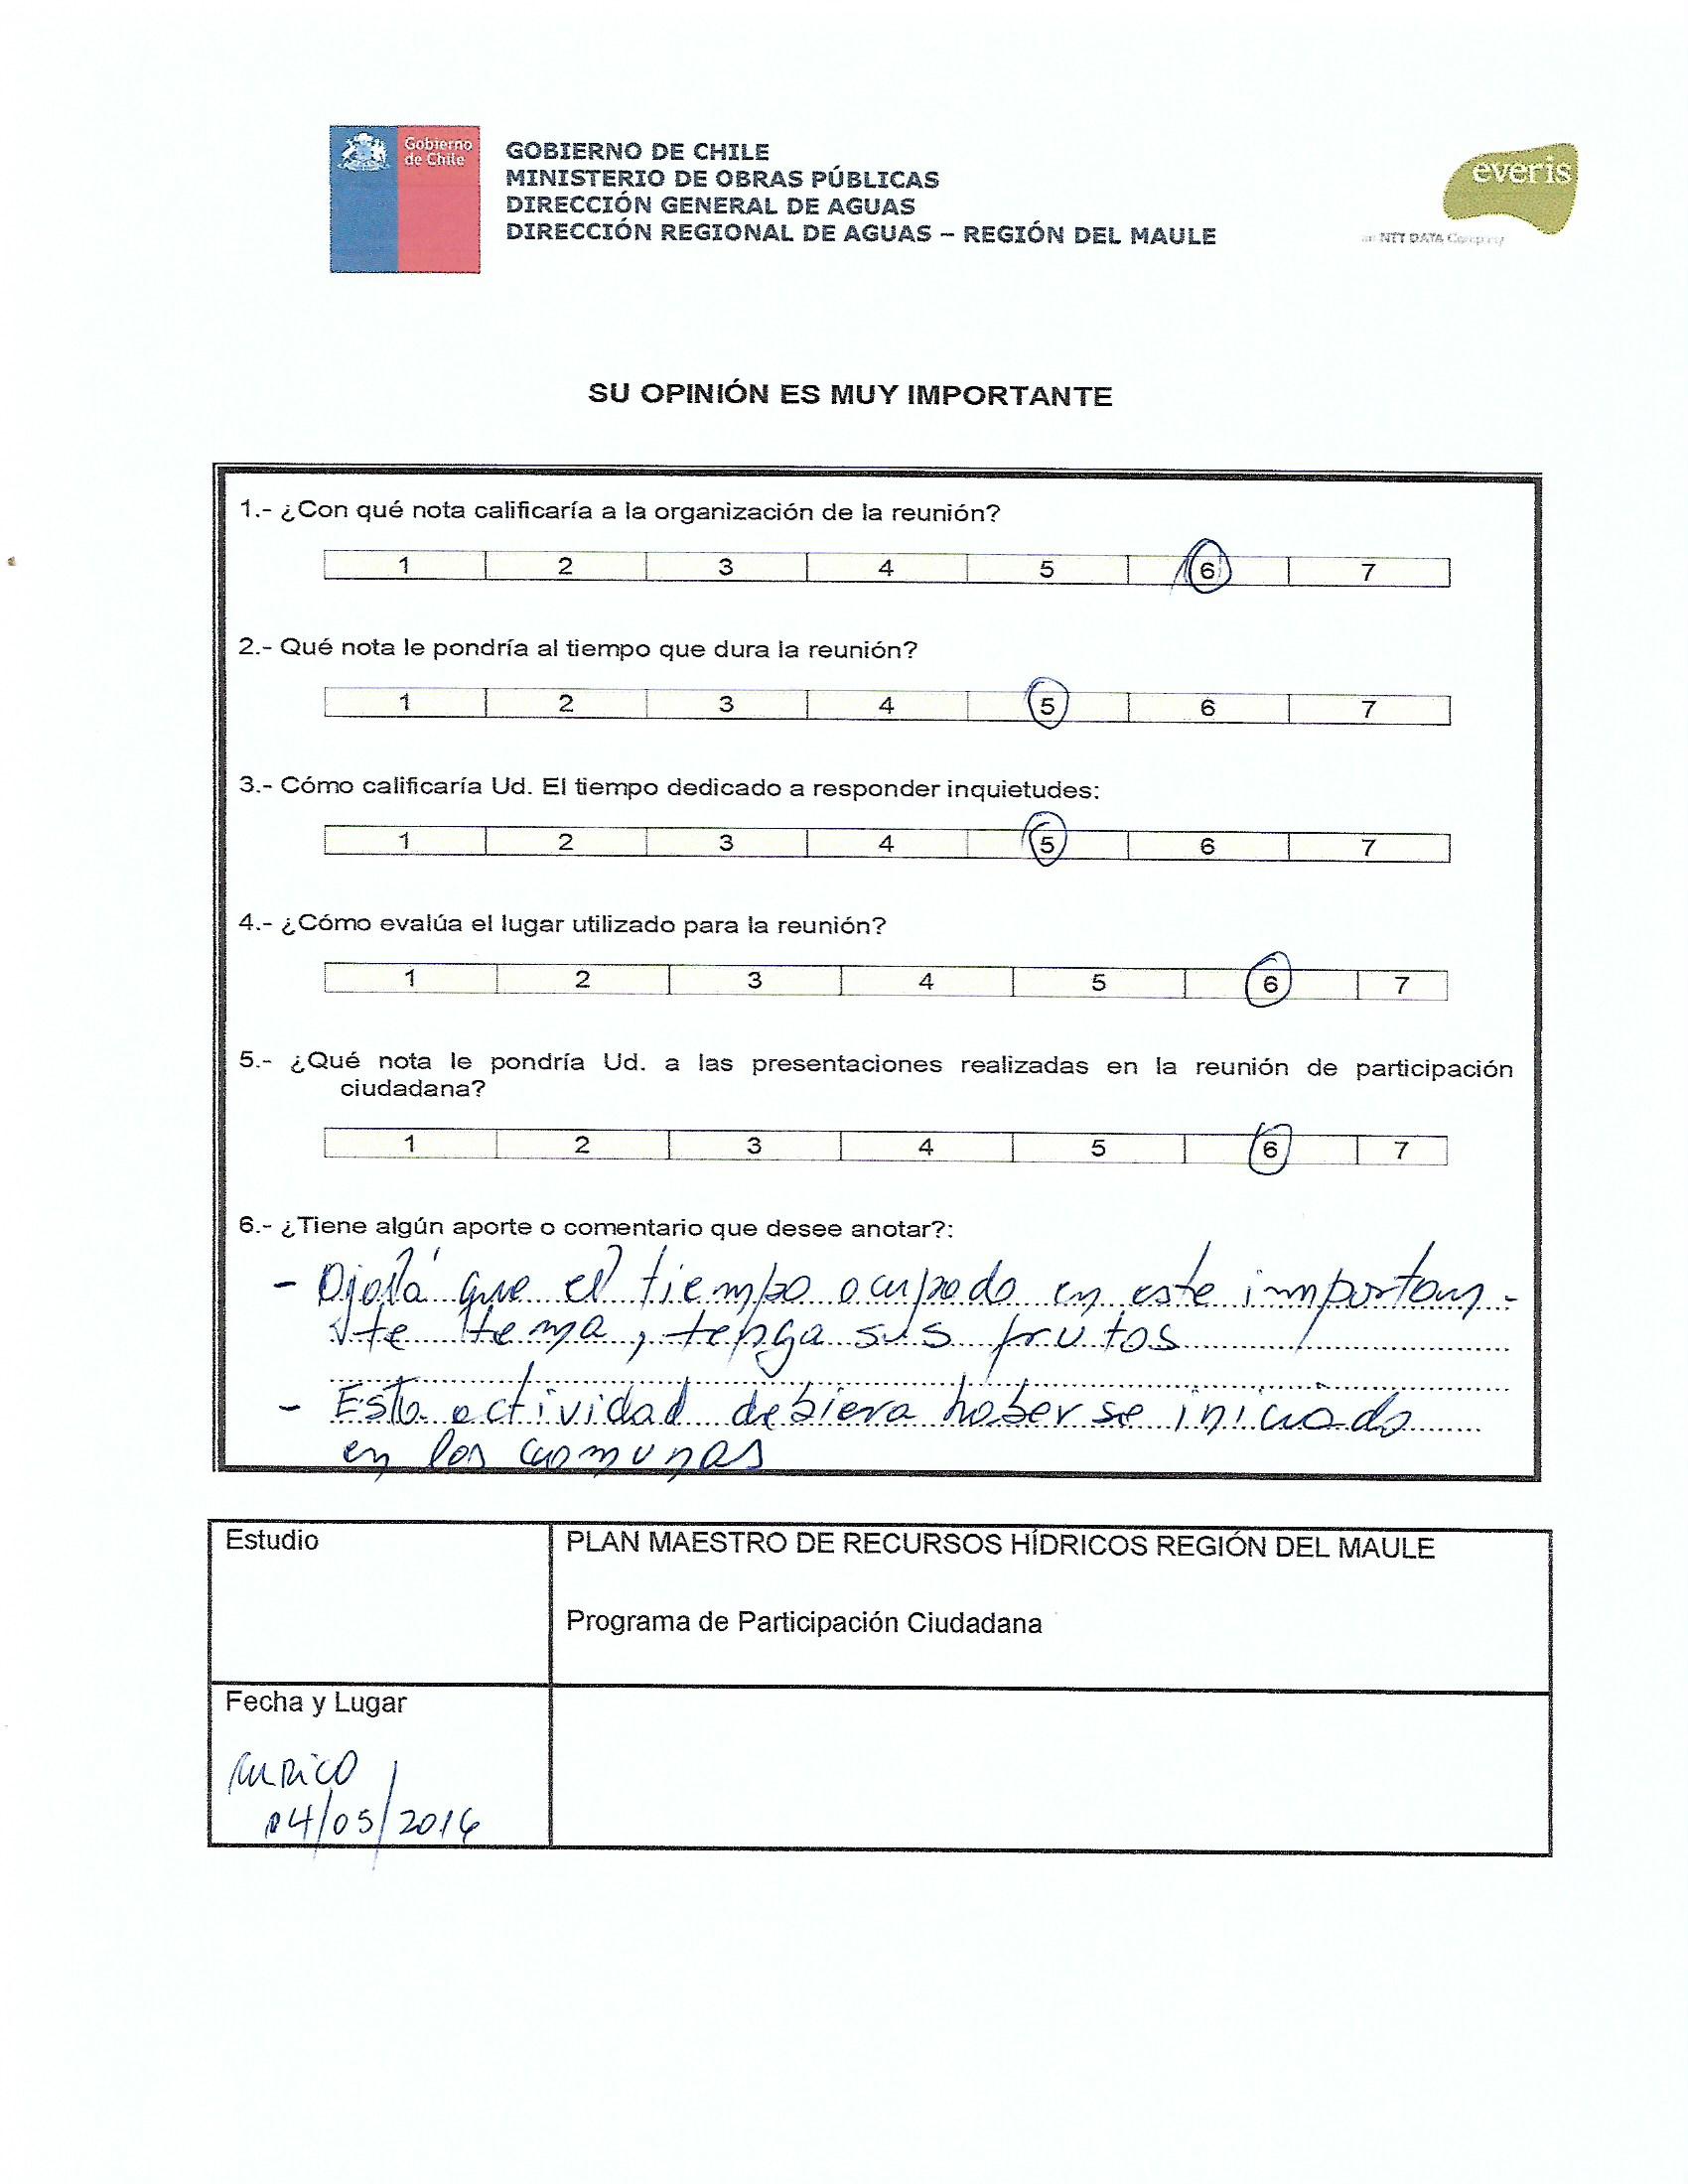 Gobierno
de Chile
GOBIERNO DE CHILE
MINISTERIO DE OBRAS PÚBLICAS
DIRECCIÓN GENERAL DE AGUAS
DIRECCIÓN REGIONAL DE AGUAS – REGIÓN DEL MAULE
everis
an NTT DATA Company
SU OPINIÓN ES MUY IMPORTANTE
1.- ¿Con qué nota calificaría a la organización de la reunión?
1 2 3 4 5 6 7
2.- Qué nota le pondría al tiempo que dura la reunión?
1 2 3 4 5 6 7
3.- Cómo calificaría Ud. El tiempo dedicado a responder inquietudes:
1 2 3 4 5 6 7
4.- ¿Cómo evalúa el lugar utilizado para la reunión?
1 2 3 4 5 6 7
5.- ¿Qué nota le pondría Ud. a las presentaciones realizadas en la reunión de participación
ciudadana?
1 2 3 4 5 6 7
6.- ¿Tiene algún aporte o comentario que desee anotar?:
- Ojalá que el tiempo ocupado en este importan-
te tema, tenga sus frutos
- Esta actividad debiera haberse iniciado
en las comunas
Estudio
PLAN MAESTRO DE RECURSOS HÍDRICOS REGIÓN DEL MAULE
Programa de Participación Ciudadana
Fecha y Lugar
CURICO
04/05/2016